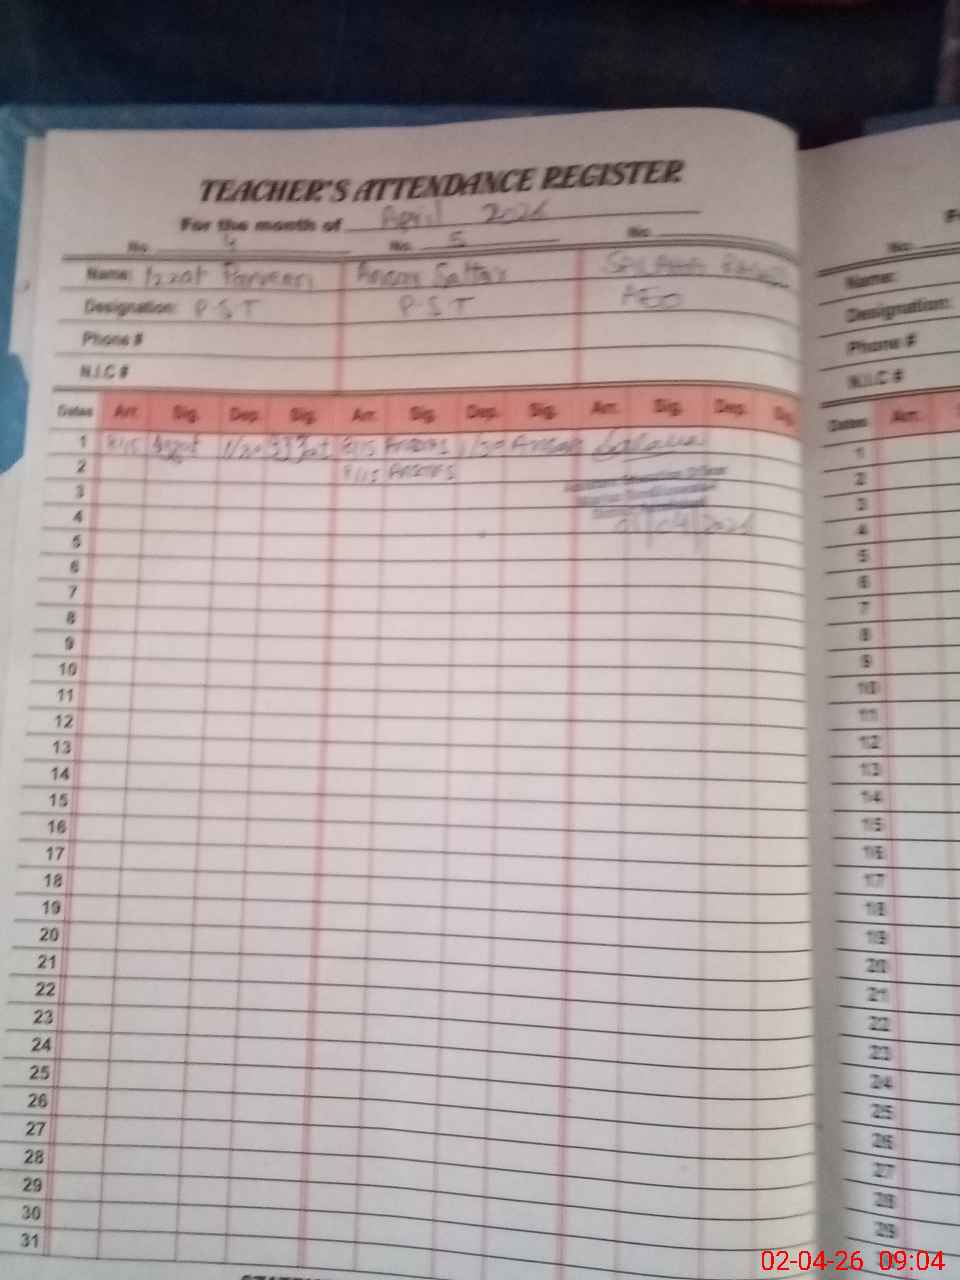 TEACHER'S ATTENDANCE REGISTER
For the month of April 2026
No. 4 No. 5 No.
Name: Izzat Parveen Ansar Sattar Salama
Designation: P.S.T P.S.T AEO
Phone #
N.I.C #
Dates Arr. Sig. Dep. Sig. Arr. Sig. Dep. Sig. Arr. Sig. Dep. Sig.
1 8/15 11/30 8/15 11/30 Ansar
2 8/15
3
4 01/04/2026
5
6
7
8
9
10
11
12
13
14
15
16
17
18
19
20
21
22
23
24
25
26
27
28
29
30
31
No.
Name:
Designation:
Phone #
N.I.C #
Dates Arr.
1
2
3
4
5
6
7
8
9
10
11
12
13
14
15
16
17
18
19
20
21
22
23
24
25
26
27
28
29
02-04-26 09:04